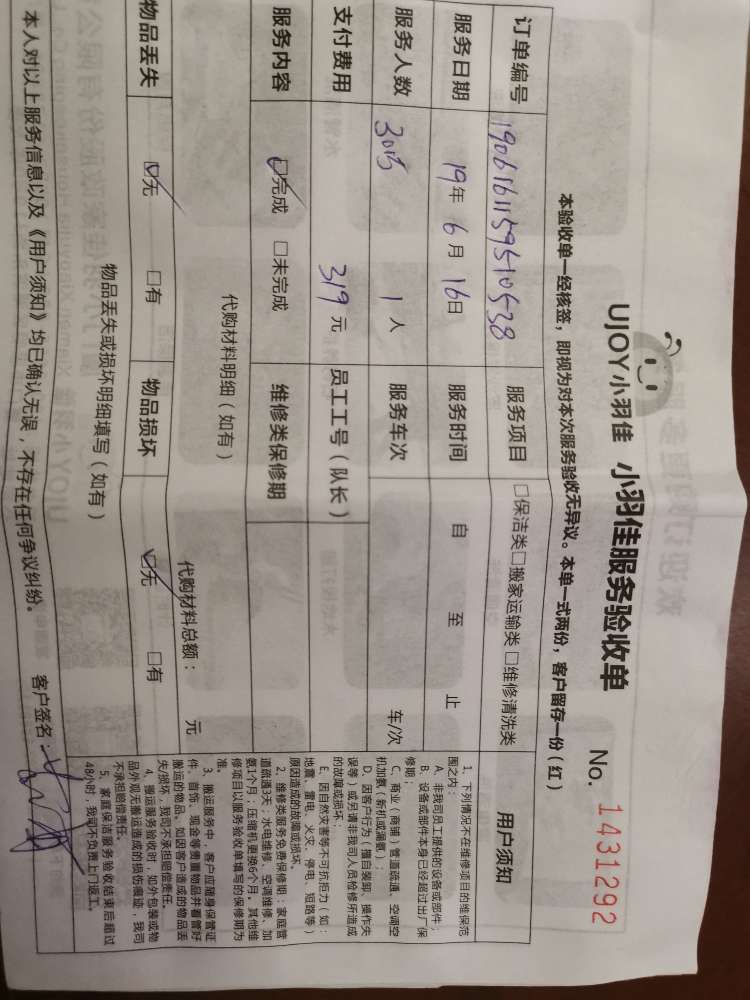 UJOY小羽佳 小羽佳服务验收单 No. 1431292
本验收单一经核签，即视为对本次服务验收无异议。本单一式两份，客户留存一份(红)
订单编号 服务项目 □保洁类□搬家运输类□维修清洗类 用户须知
服务日期 19年 6月 16日 服务时间 自 至 止
服务人数 1 人 服务车次 车/次
支付费用 319 元 员工工号（队长）
服务内容 ☑完成 □未完成 维修类保修期
代购材料明细（如有） 代购材料总额： 元
物品丢失 ☑无 □有 物品损坏 ☑无 □有
物品丢失或损坏明细填写（如有）
本人对以上服务信息以及《用户须知》均已确认无误，不存在任何争议纠纷。 客户签名：
1、下列情况不在维修项目的维保范
围之内：
A、非我司员工提供的设备或部件；
B、设备或部件本身已经超过出厂保
修期；
C、商业（商铺）管道疏通、空调空
机加氨（新机或漏氨）；
D、因客户行为（擅自装卸、操作失
误等）或另请非我司人员检修所造成
的故障或损坏；
E、因自然灾害等不可抗拒力（如：
地震、雷电、火灾、停电、短路等）
原因造成的故障或损坏。
2、维修类服务免费保修期：家庭管
道疏通3天；水电维修、空调维修、加
氨1个月；压缩机更换6个月。其他维
修项目以服务验收单填写的保修期为
准。
3、搬运服务中，客户应随身保管证
件、首饰、现金等贵重物品并看管好
搬运的物品。如因客户造成的物品丢
失/损坏，我司不承担赔偿责任。
4、搬运服务验收时，如外包装或物
品外观无搬运造成的损伤痕迹，我司
不承担赔偿责任。
5、家庭保洁服务验收结束后超过
48小时，我司不负责上门返工。